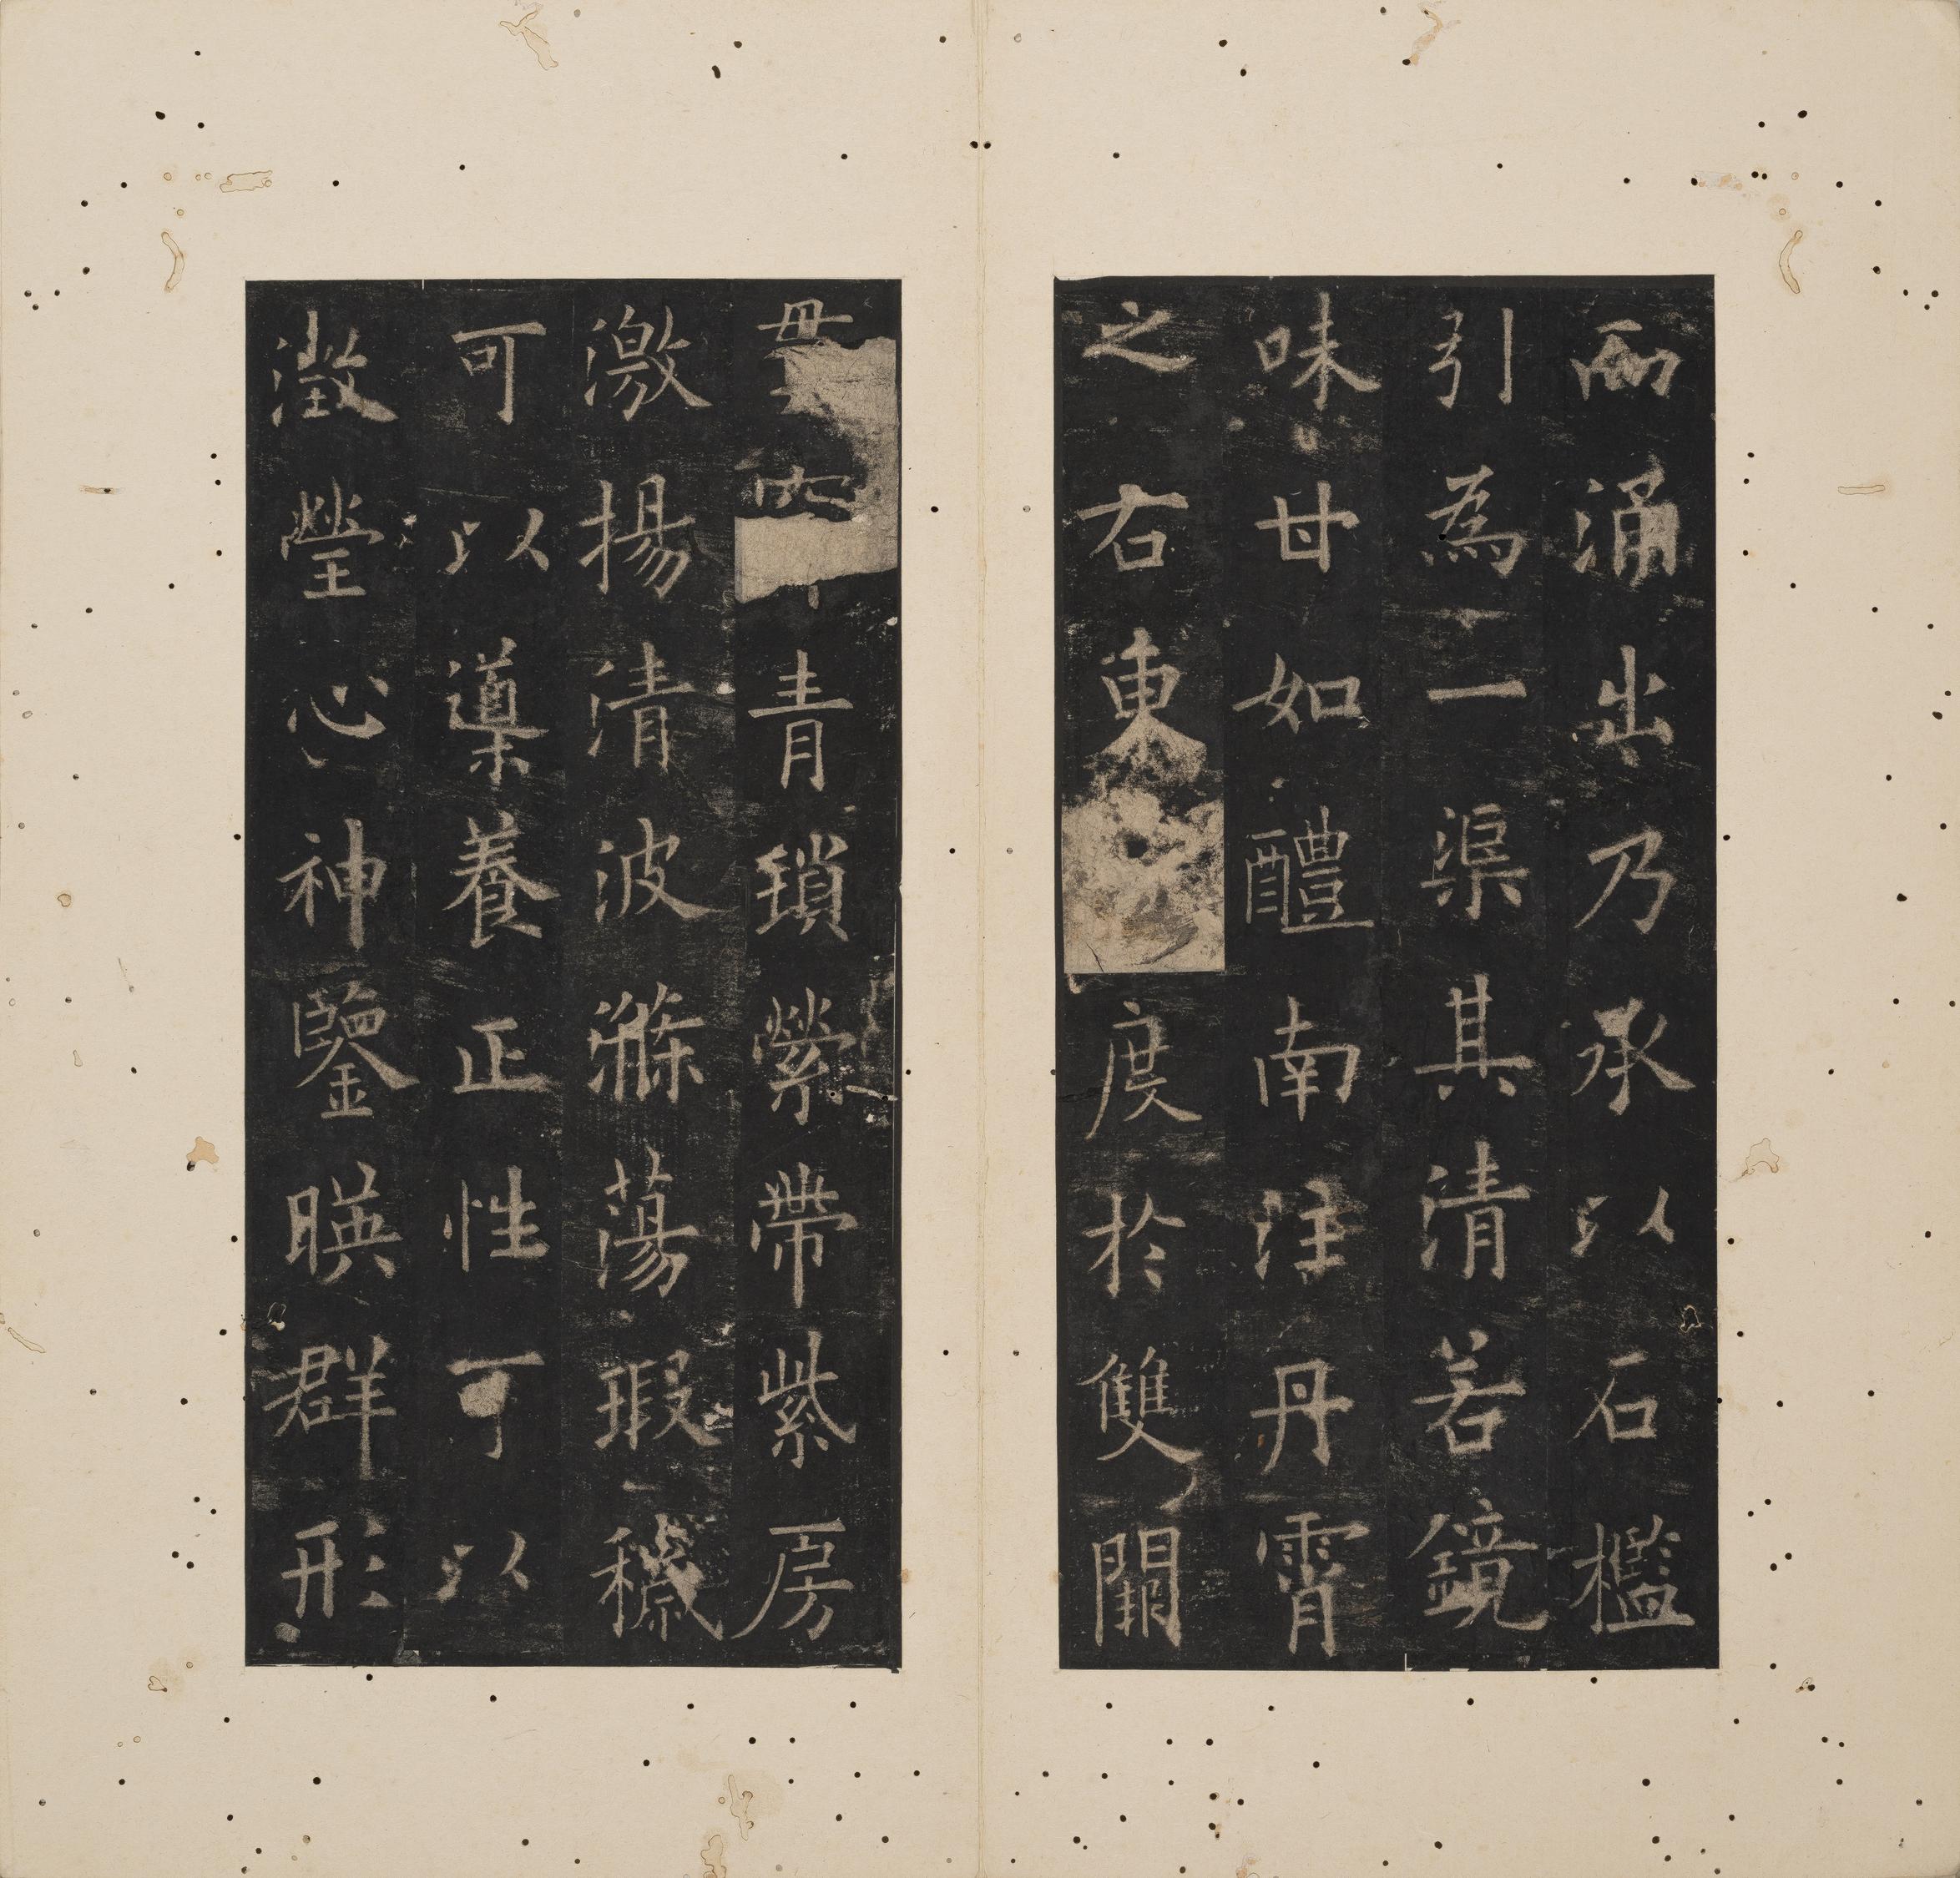 而涌出乃承以石檻
引為一渠其清若鏡
味甘如醴南注丹霄
之右東度於雙闕
貫青瑣縈帶紫房
激揚清波滌蕩瑕穢
可以導養正性可以
澂瑩心神鑒暎群形